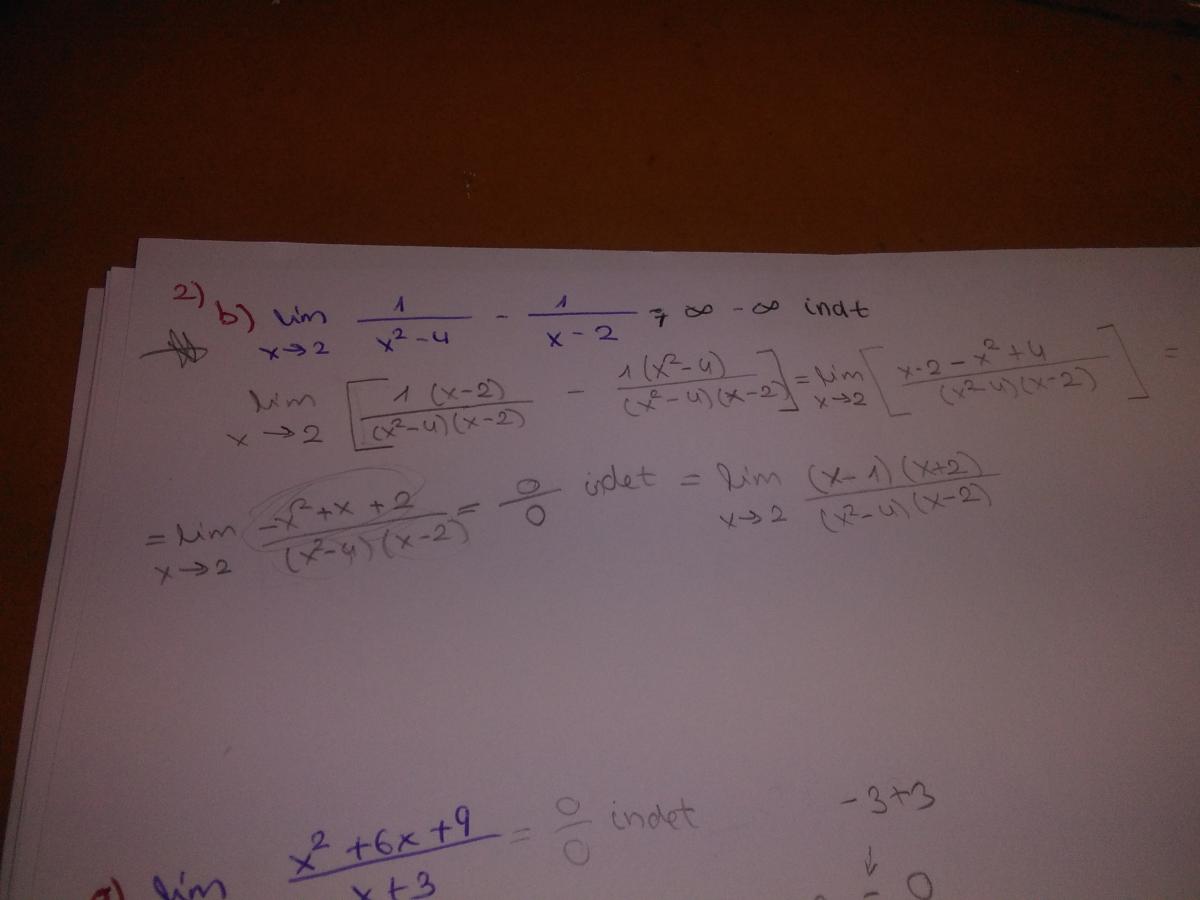 2) b) lim x→2 1/(x²-4) - 1/(x-2) = ∞ - ∞ indt
lim x→2 [1(x-2)/((x²-4)(x-2)) - 1(x²-4)/((x²-4)(x-2))] = lim x→2 [(x-2-x²+4)/((x²-4)(x-2))] =
= lim x→2 (-x²+x+2)/((x²-4)(x-2)) = 0/0 indet = lim x→2 (x-1)(x+2)/((x²-4)(x-2))
-3+3
↓
lim (x²+6x+9)/(x+3) = 0/0 indet
= 0